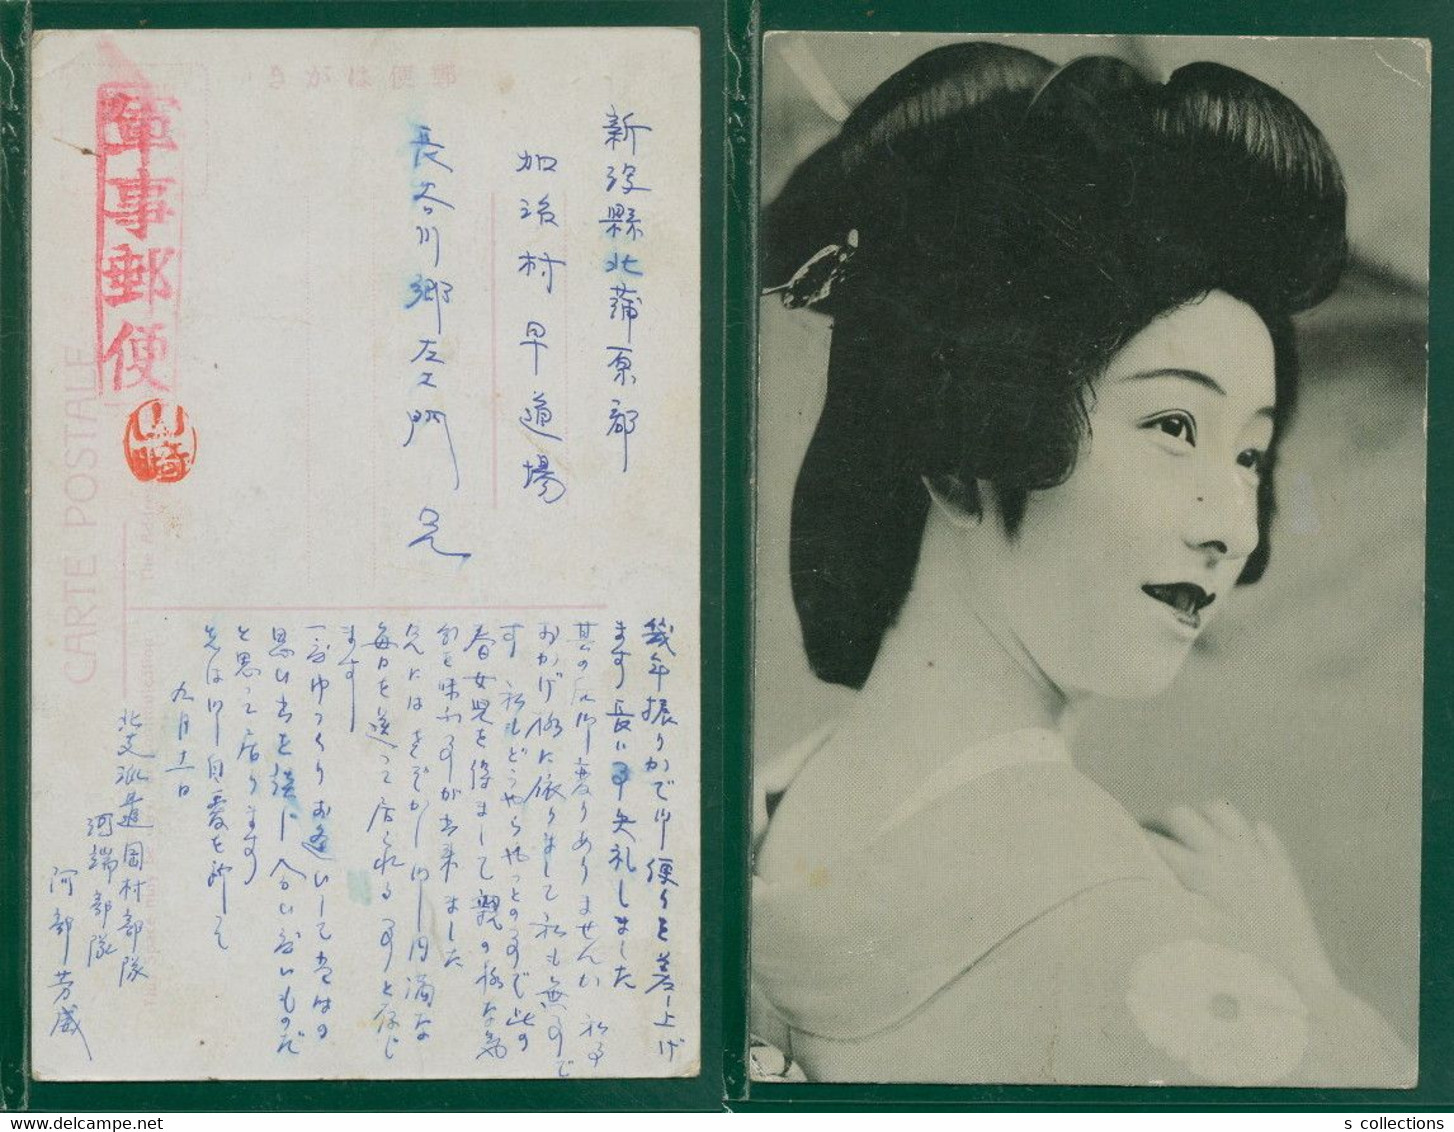 郵便はがき
軍事郵便
山崎
CARTE POSTALE
新潟縣北蒲原郡
加治村早道場
長谷川郷左エ門兄
幾年振りかで御便りを差上げ
ます長い事失礼しました
其の后御変りありませんか 私事
おかげ様に依りまして私も無事で
す 私もどうやらやっとの事で此の
春女児を得まして親の様な気
分を味ふ事が出来ました
兄にはさぞかし御円満な
毎日を送って居られる事と存じ
ます
一度ゆっくりお逢いして
思い出を談に
と思って居ります
先は御自愛を祈って
九月十一日
北支派遣岡村部隊
河端部隊
阿部芳威
s collections